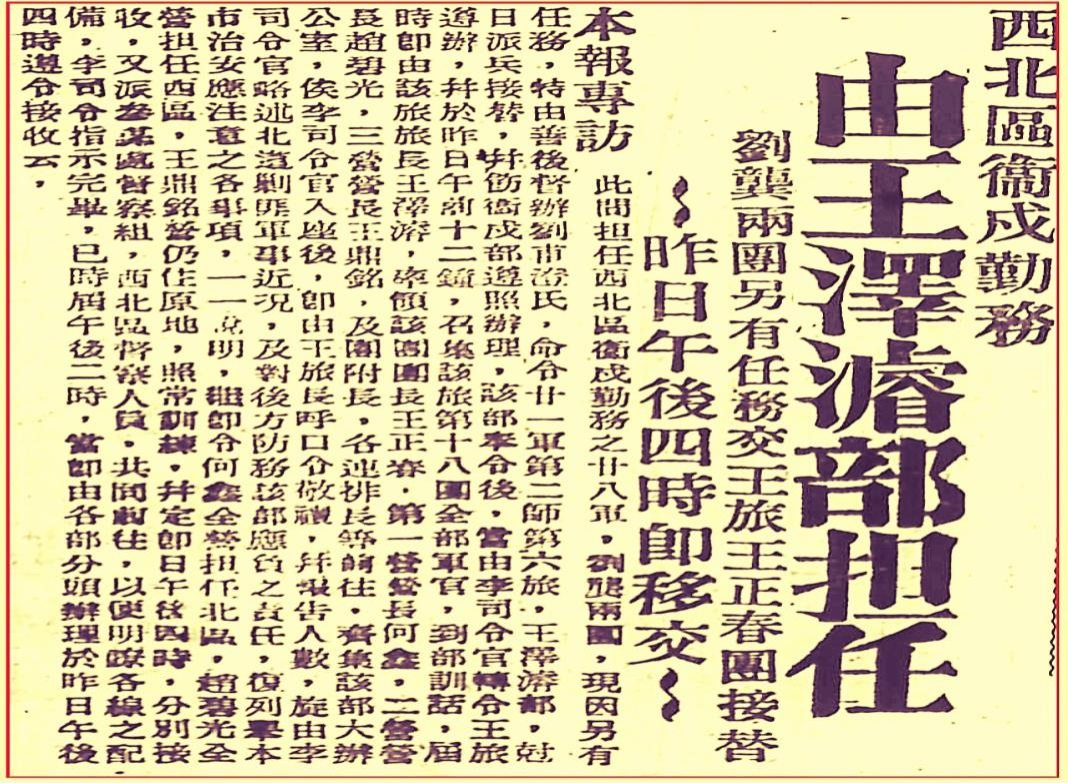 西北區衞戍勤務
由王澤濬部担任
劉龔兩團另有任務交王旅王正春團接替
昨日午後四時卽移交
本報專訪
此間担任西北區衞戍勤務之廿八軍，劉龔兩團，現因另有
任務，特由善後督辦劉市澄氏，命令廿一軍第二師第六旅，王澤濬部，尅
日派兵接替，幷飭衞戍部遵照辦理，該部奉令後，當由李司令官轉令王旅
遵辦，幷於昨日午前十二鐘，召集該旅第十八團全部軍官，到部訓話，屆
時卽由該旅旅長王澤濬，率領該團團長王正春，第一營營長何鑫，二營營
長趙碧光，三營營長王鼎銘，及團附長，各連排長等前往，齊集該部大辦
公室，俟李司令官入座後，卽由王旅長呼口令敬禮，幷報告人數，旋由李
司令官略述北道剿匪軍事近况，及對後方防務該部應負之責任，復列舉本
市治安應注意之各事項，一一說明，繼卽令何鑫全營担任北區，趙碧光全
營担任西區，王鼎銘營仍住原地，照常訓練，幷定卽日午後四時，分別接
收，又派參謀處督察組，西北區督察人員，共同前往，以便明瞭各線之配
備，李司令指示完畢，已時屆午後二時，當卽由各部分頭辦理於昨日午後
四時遵令接收云，